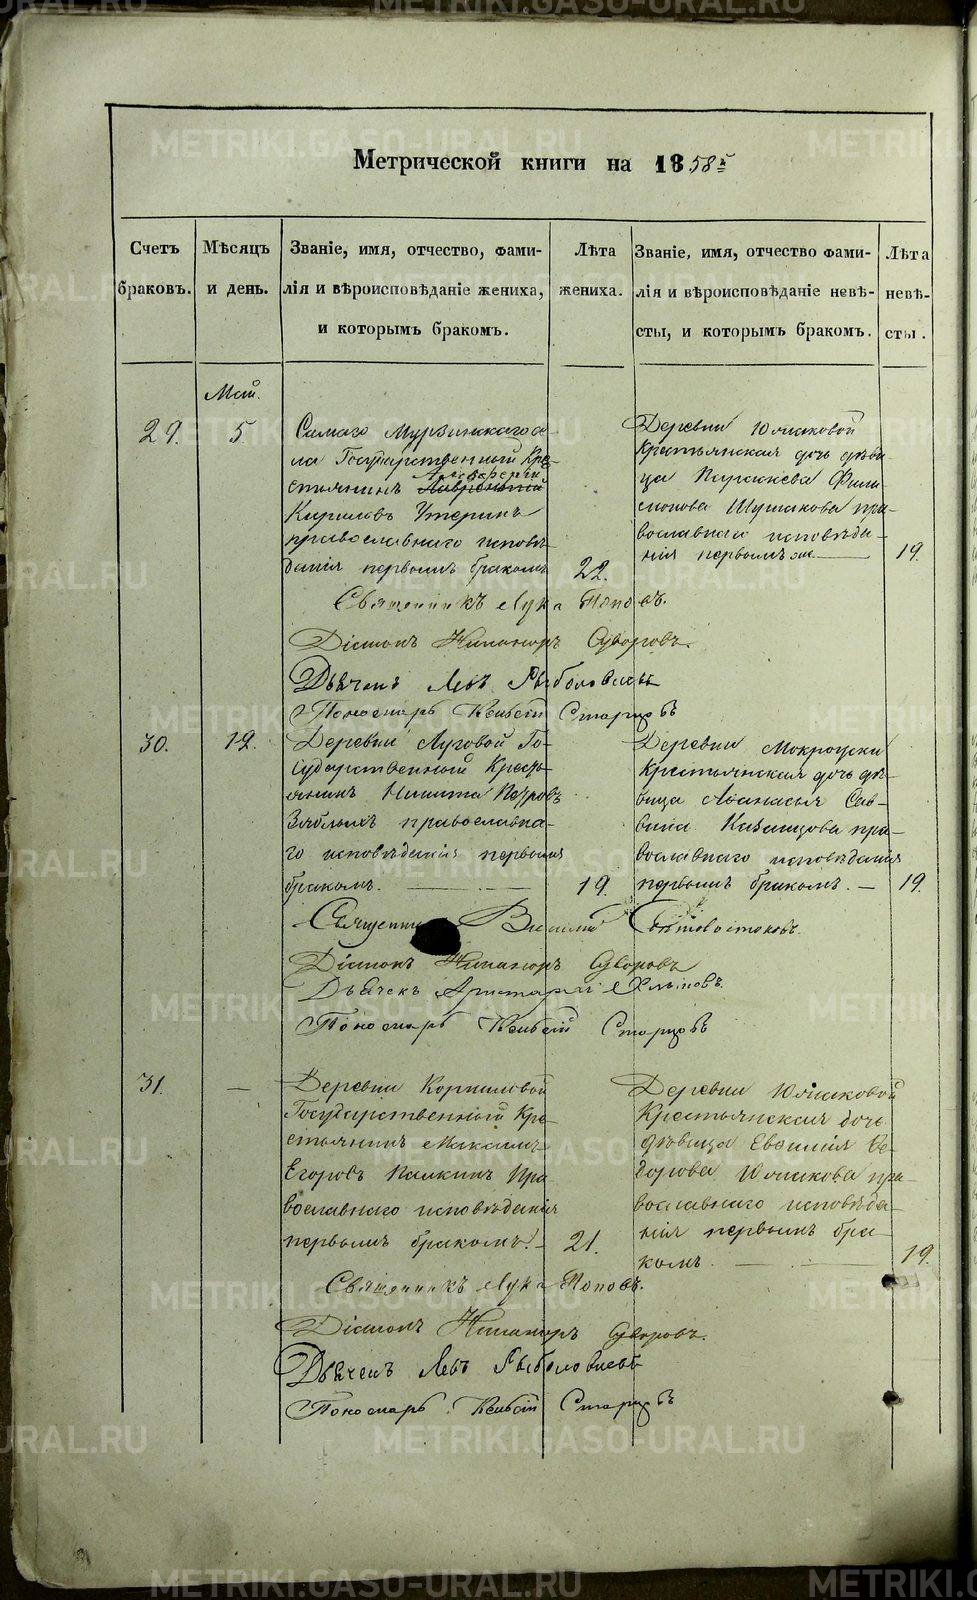 METRIKI.GASO-URAL.RU
Метрической книги на 1858й
Счетъ браковъ.
Мѣсяцъ и день.
Званіе, имя, отчество, фами-
лія и вѣроисповѣданіе жениха,
и которымъ бракомъ.
Лѣта жениха.
Званіе, имя, отчество фами-
лія и вѣроисповѣданіе невѣ-
сты, и которымъ бракомъ.
Лѣта невѣ-
сты.
Май.
29.
5.
Самаго Мурзинскаго се-
ла Государственный Кре-
стьянинъ
Кириловъ Утеринъ
православнаго исповѣ-
данія первымъ бракомъ
22.
Деревни Южаковой
Крестьянская дочь дѣви-
ца Параскева Фили-
монова Шушакова пра-
вославнаго исповѣда-
нія первымъ же
19.
Священникъ Лука Поповъ.
Діаконъ Никаноръ Суворовъ.
Дьячекъ Левъ Рыболовлевъ
Пономарь Старцовъ
30.
12.
Деревни Луговой Го-
сударственный Кресть-
янинъ Никита Петровъ
православна-
го исповѣданія первымъ
бракомъ.
19.
Деревни
Крестьянская дочь дѣ-
вица Афанасья Сав-
вина Казанцова пра-
вославнаго исповѣданія
первымъ бракомъ.
19.
Василій Свѣтовостоковъ.
Діаконъ Никаноръ Суворовъ
Дьячекъ Аристархъ
Пономарь Старцовъ
31.
—
Деревни Корниловой
Государственный Кре-
стьянинъ Максимъ
Егоровъ Палкинъ пра
вославнаго исповѣданія
первымъ бракомъ.
21.
Деревни Южаковой
Крестьянская дочь
дѣвица Евфимія Фе-
дорова Южакова пра-
вославнаго исповѣда-
нія первымъ бра-
комъ.
19.
Священникъ Лука Поповъ.
Діаконъ Никаноръ Суворовъ.
Дьячекъ Левъ Рыболовлевъ
Пономарь Старцовъ